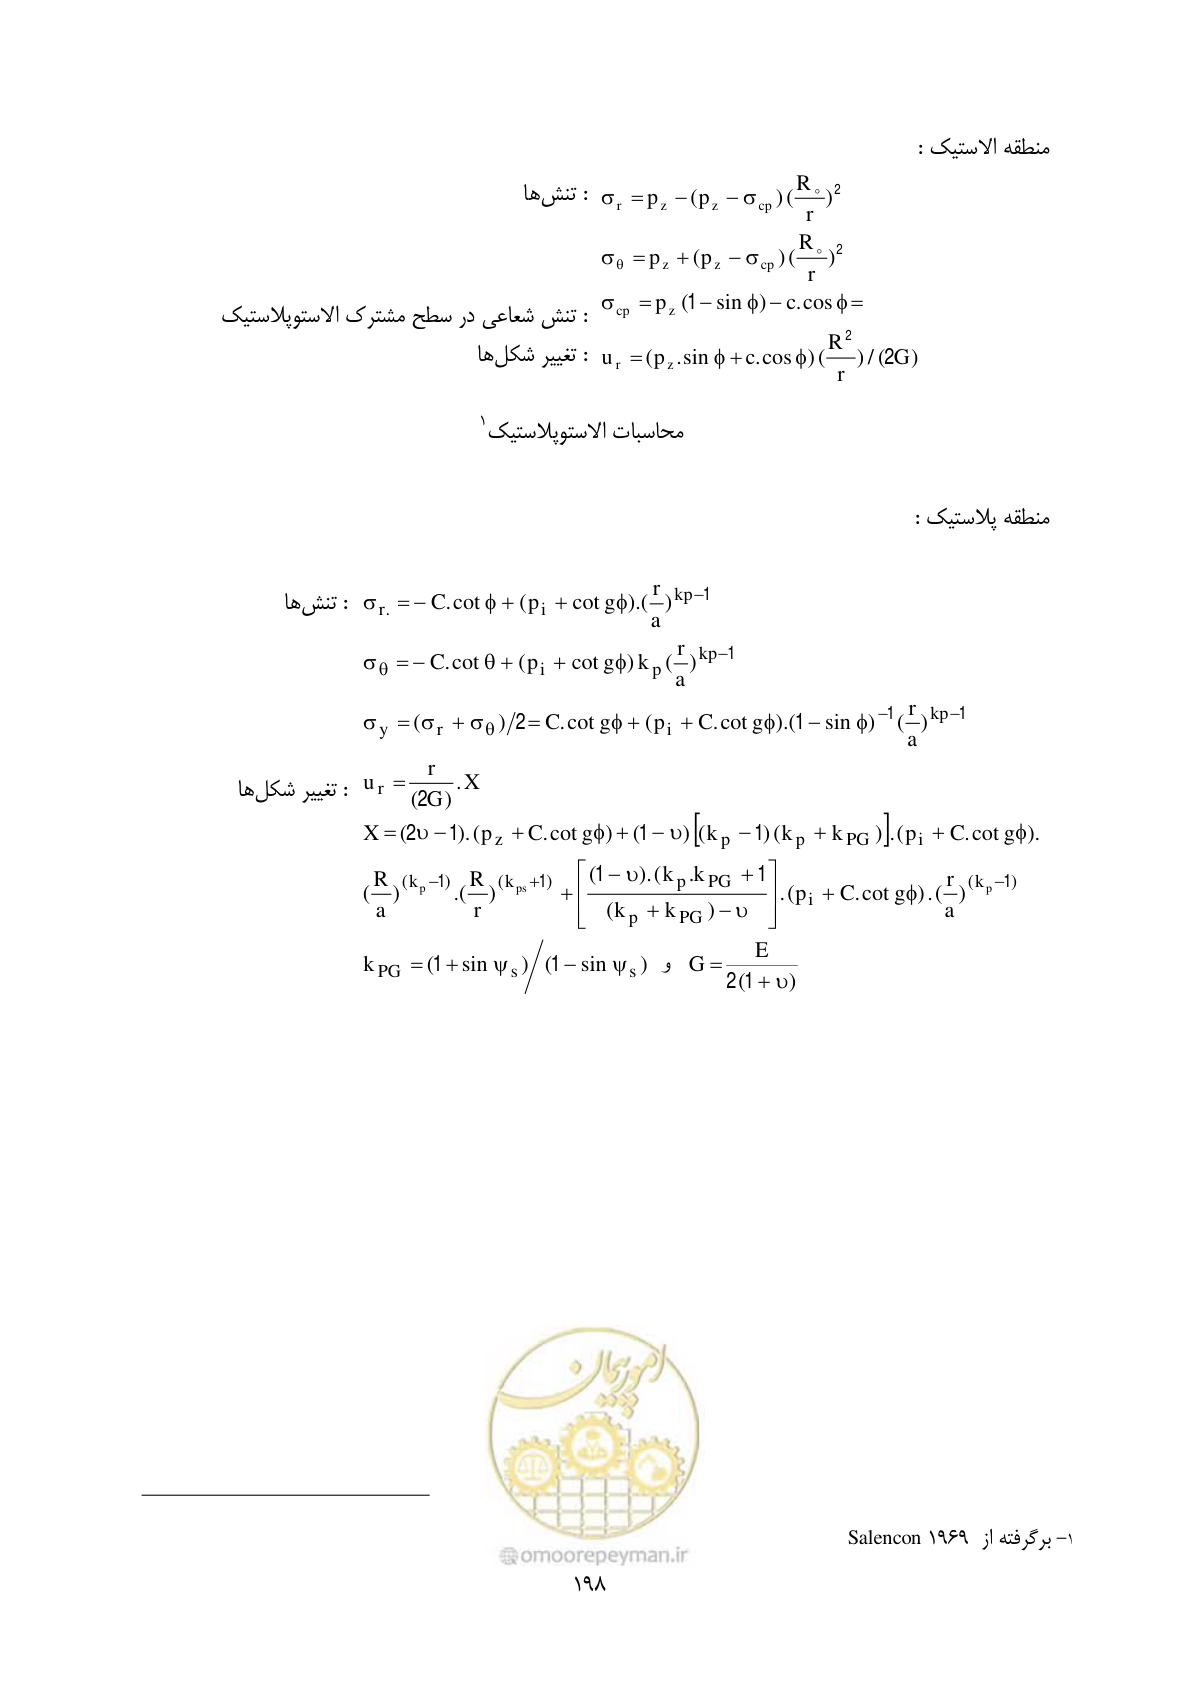 منطقه الاستیک :
تنش‌ها : σ_r = p_z − (p_z − σ_cp)(R_°/r)^2
σ_θ = p_z + (p_z − σ_cp)(R_°/r)^2
تنش شعاعی در سطح مشترک الاستوپلاستیک : σ_cp = p_z (1 − sin ϕ) − c.cos ϕ =
تغییر شکل‌ها : u_r = (p_z.sin ϕ + c.cos ϕ)(R^2/r)/(2G)
محاسبات الاستوپلاستیک۱
منطقه پلاستیک :
تنش‌ها : σ_r. = − C.cot ϕ + (p_i + cot gϕ).(r/a)^{kp−1}
σ_θ = − C.cot θ + (p_i + cot gϕ) k_p (r/a)^{kp−1}
σ_y = (σ_r + σ_θ)/2 = C.cot gϕ + (p_i + C.cot gϕ).(1 − sin ϕ)^{−1} (r/a)^{kp−1}
تغییر شکل‌ها : u_r = r/(2G) . X
X = (2υ − 1).(p_z + C.cot gϕ) + (1 − υ)[(k_p − 1)(k_p + k_PG)].(p_i + C.cot gϕ).
(R/a)^{(k_p −1)} .(R/r)^{(k_ps +1)} + [(1 − υ).(k_p.k_PG + 1 / (k_p + k_PG) − υ].(p_i + C.cot gϕ).(r/a)^{(k_p −1)}
k_PG = (1 + sin ψ_s)/(1 − sin ψ_s) و G = E/2(1 + υ)
امور پیمان
@omoorepeyman.ir
۱- برگرفته از Salencon ۱۹۶۹
۱۹۸